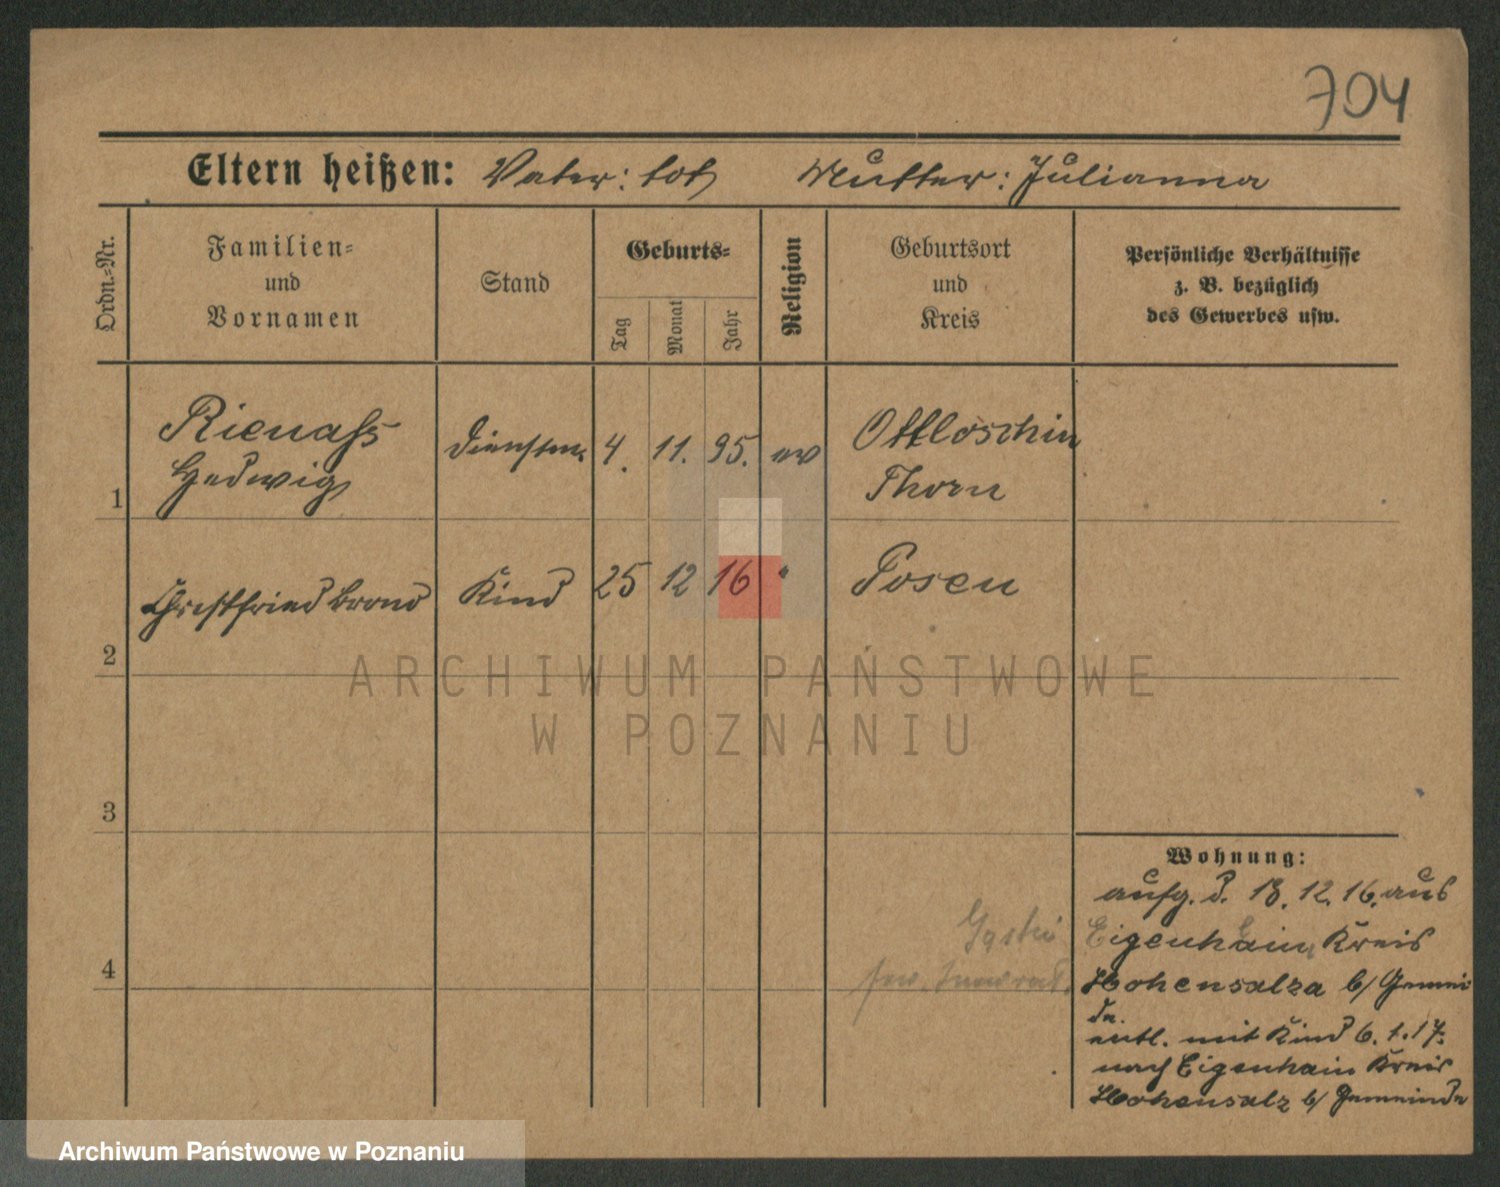 704
Eltern heißen: Vater: tot Mutter: Julianna
Ordn.-Nr.
Familien-
und
Vornamen
Stand
Geburts-
Tag
Monat
Jahr
Religion
Geburtsort
und
Kreis
Persönliche Verhältnisse
z. B. bezüglich
des Gewerbes usw.
1
Rienass
Hedwig
Dienstm.
4. 11. 95. ev
Ottloschin
Thorn
2
Christfried Bruno
Kind 25 12 16 " Posen
3
4
Wohnung:
aufg. d. 13. 12. 16. aus
Eigenhain, Kreis
Hohensalza b/ Gemein
de.
entl. mit Kind 6. 1. 17.
nach Eigenhain Kreis
Hohensalz b/ Gemeinde
ARCHIWUM PAŃSTWOWE
W POZNANIU
Archiwum Państwowe w Poznaniu